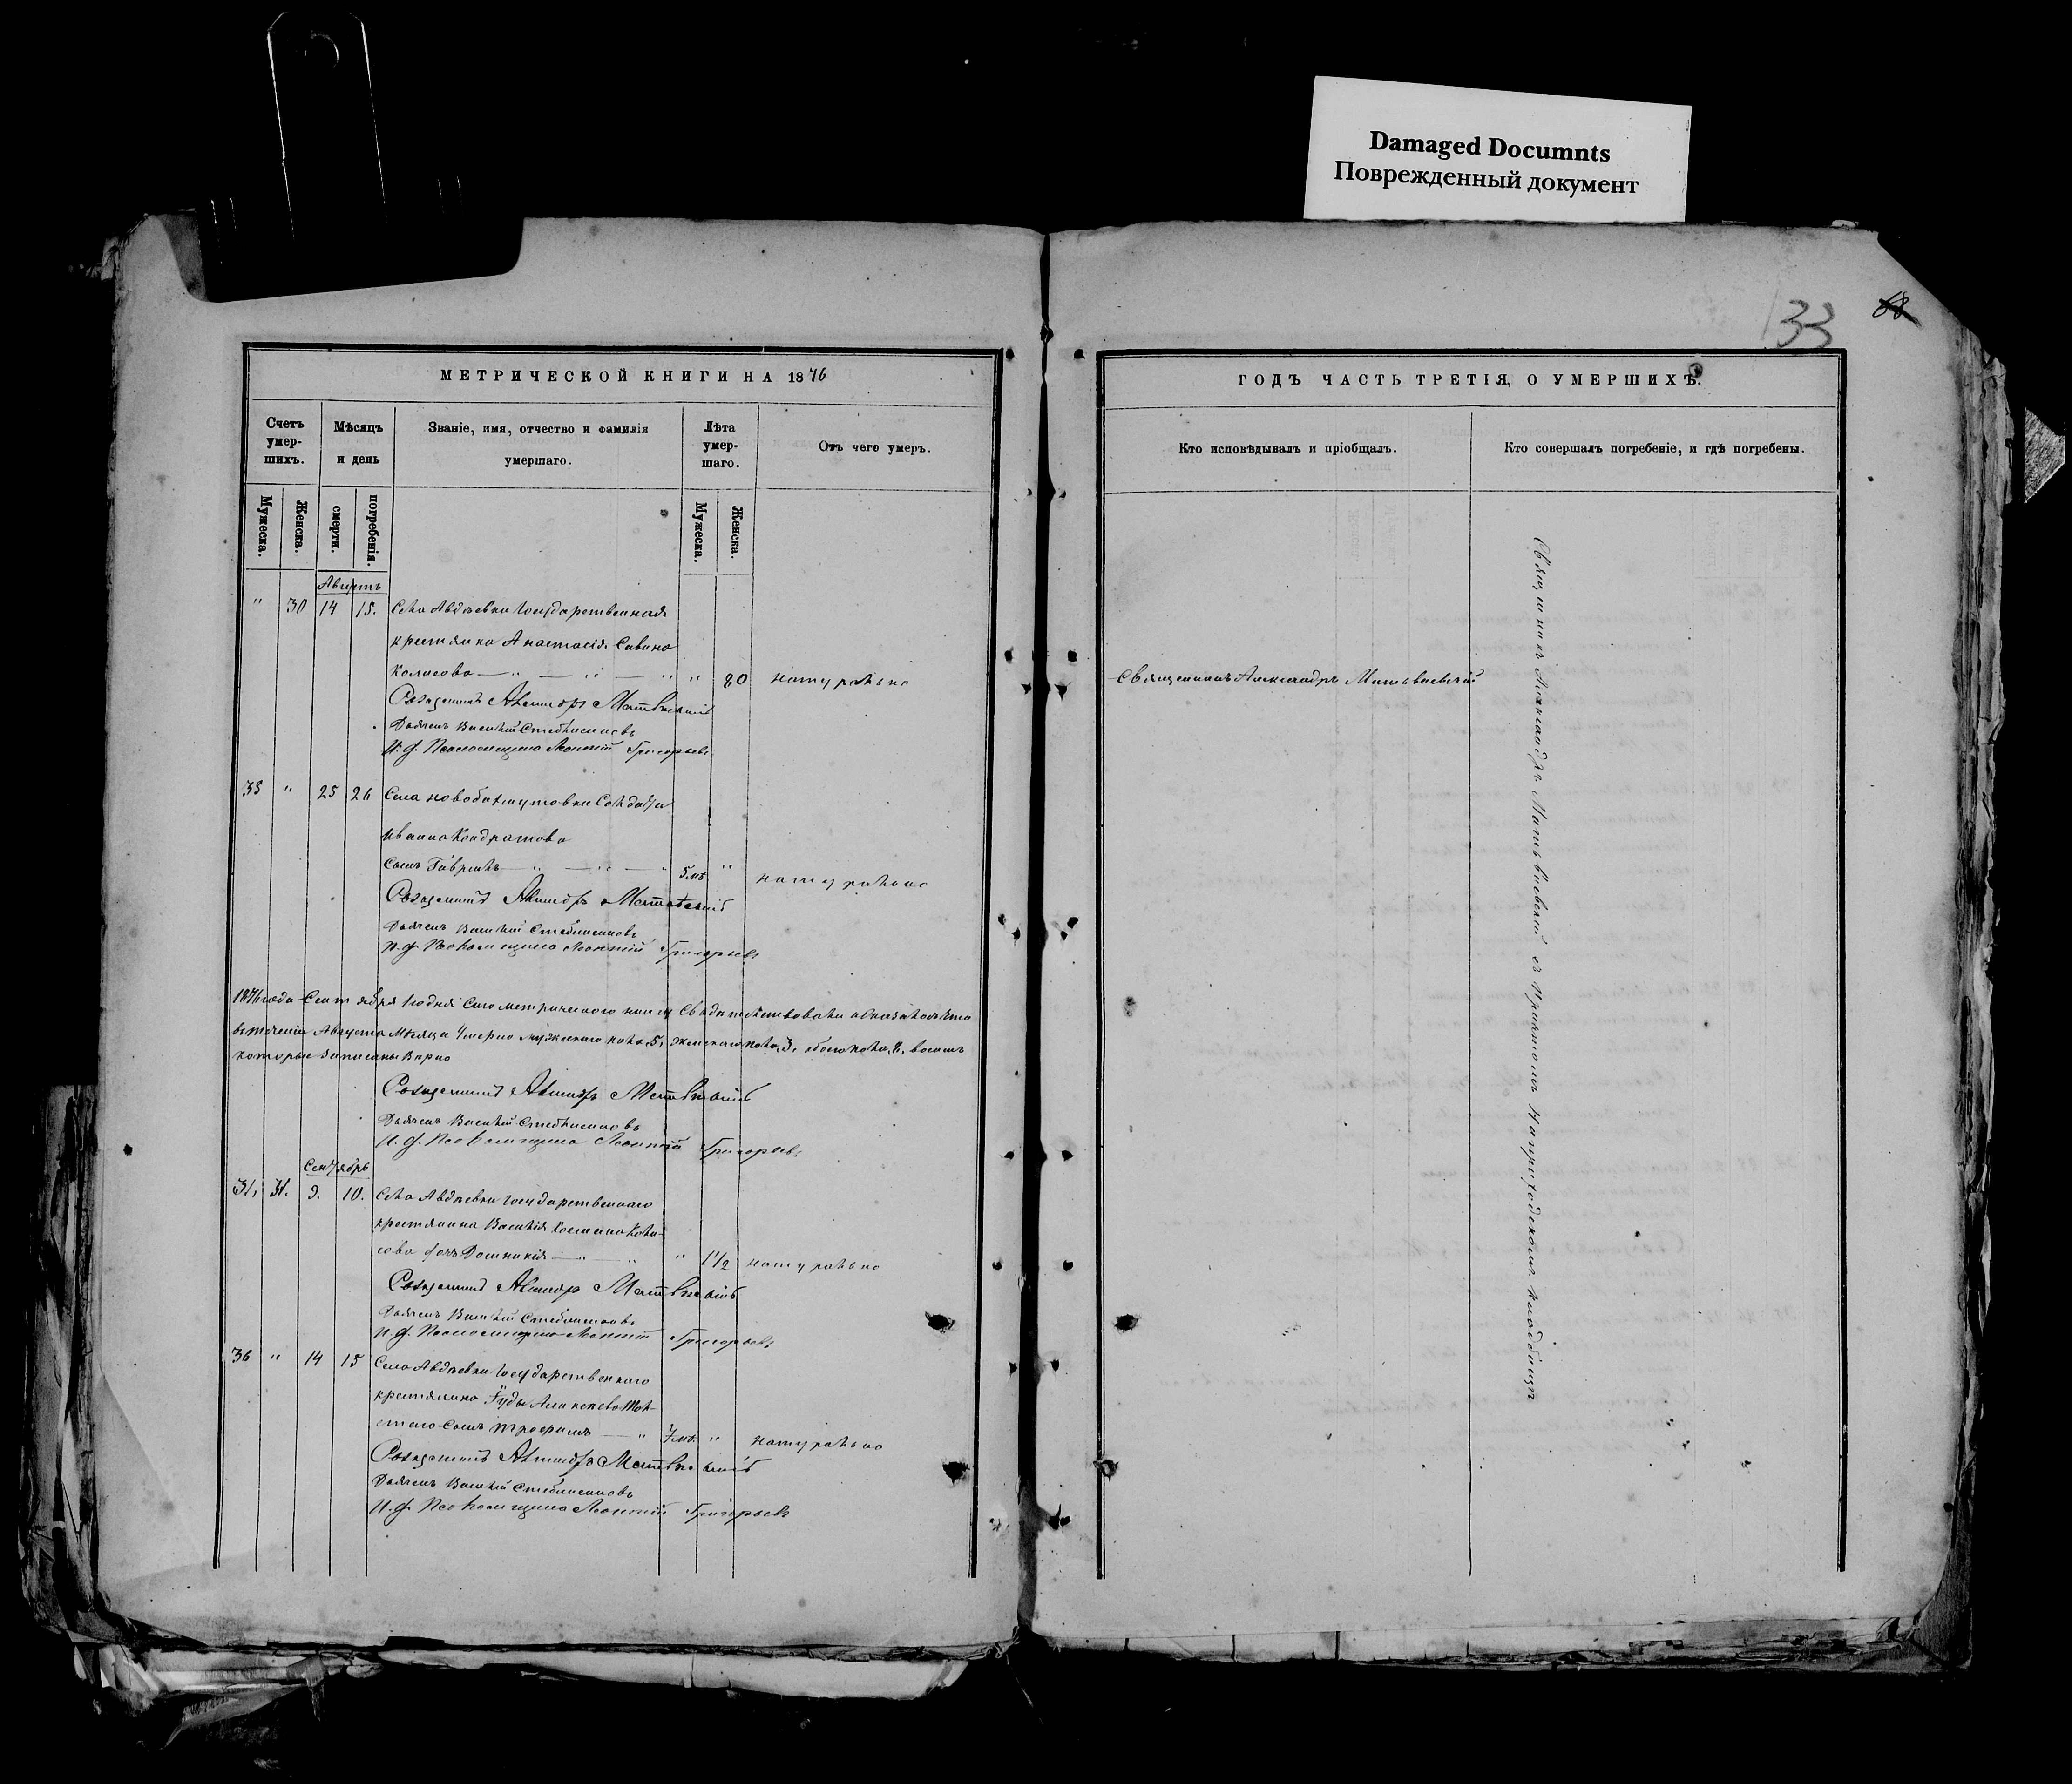 Damaged Documnts
Поврежденный документ
133
68
МЕТРИЧЕСКОЙ КНИГИ НА 1876
Счетъ умер-шихъ.
Мѣсяцъ и день
Званіе, имя, отчество и фамилія умершаго.
Лѣта умер-шаго.
Отъ чего умеръ.
Мужеска.
Женска.
смерти.
погребенія.
Мужеска.
Женска.
Августъ
" 30 14 15. Села Авдѣевки Государственная
крестянка Анастасія Савина
Колосова " " 80 натурально
Священникъ Александръ Матвѣевскій
Дьячекъ Василій
И. ф. Псаломщика Леонтій Григорьевъ
35 " 25 26 Села Новобахмутовки Солдата
Ивана Кондратова
сынъ Гавриилъ 5 мѣ. " натурально
Священникъ Александръ Матвѣевскій
Дьячекъ Василій
И. ф. Псаломщика Леонтій Григорьевъ
1876 года Сентября 1 дня Сию метрическую книгу Свидѣтельствовали
въ теченіи Августа Мѣсяца Умерло мужескаго пола 5, женскаго пола 3, обоего пола 8, восемь
которые записаны Вѣрно
Священникъ Александръ Матвѣевскій
Дьячекъ Василій
И. ф. Псаломщика Леонтій Григорьевъ
Сентябрь
31. 9. 10. Села Авдѣевки Государственнаго
крестянина Василія Косьмина Коло-
сова дочь Домникія " 1 1/2 натурально
Священникъ Александръ Матвѣевскій
Дьячекъ Василій
И. ф. Псаломщика Леонтій Григорьевъ
36 " 14 15 Села Авдѣевки Государственнаго
крестянина Іуды Тол-
стаго сынъ Трофимъ " 7 мѣ. " натурально
Священникъ Александръ Матвѣевскій
Дьячекъ Василій
И. ф. Псаломщика Леонтій Григорьевъ
ГОДЪ ЧАСТЬ ТРЕТІЯ, О УМЕРШИХЪ.
Кто исповѣдывалъ и пріобщалъ.
Кто совершалъ погребеніе, и гдѣ погребены.
Священникъ Александръ Матвѣевскій
Священникъ Александръ Матвѣевскій съ Причтомъ На приходскомъ кладбищѣ